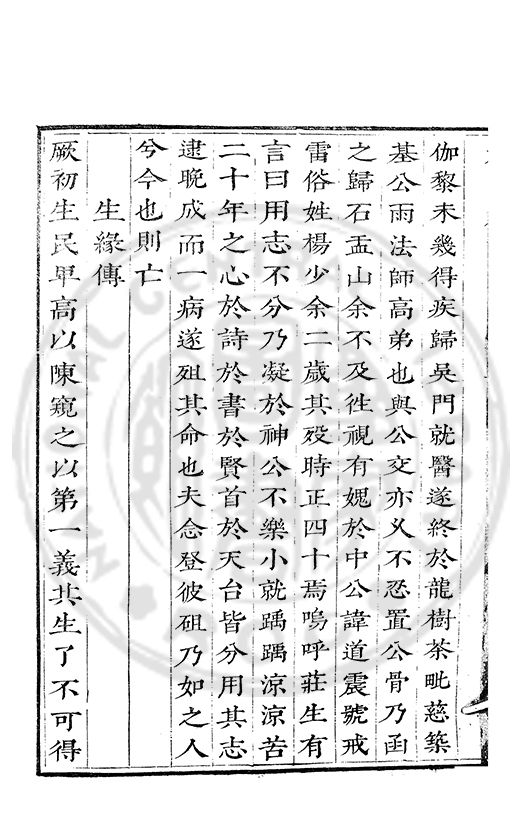 伽黎未幾得疾歸吳門就醫遂終於龍樹茶毗慈築
基公雨法師高弟也與公交亦乂不忍置公骨乃函
之歸石盂山余不及徃視有媿於中公諱道震號戒
雷俗姓楊少余二歲其歿時正四十焉嗚呼莊生有
言曰用志不分乃凝於神公不樂小就踽踽涼涼苦
二十年之心於詩於書於賢首於天台皆分用其志
逮晩成而一病遂殂其命也夫念登彼砠乃如之人
兮今也則亡
生緣傳
厥初生民卑高以陳窺之以第一義共生了不可得